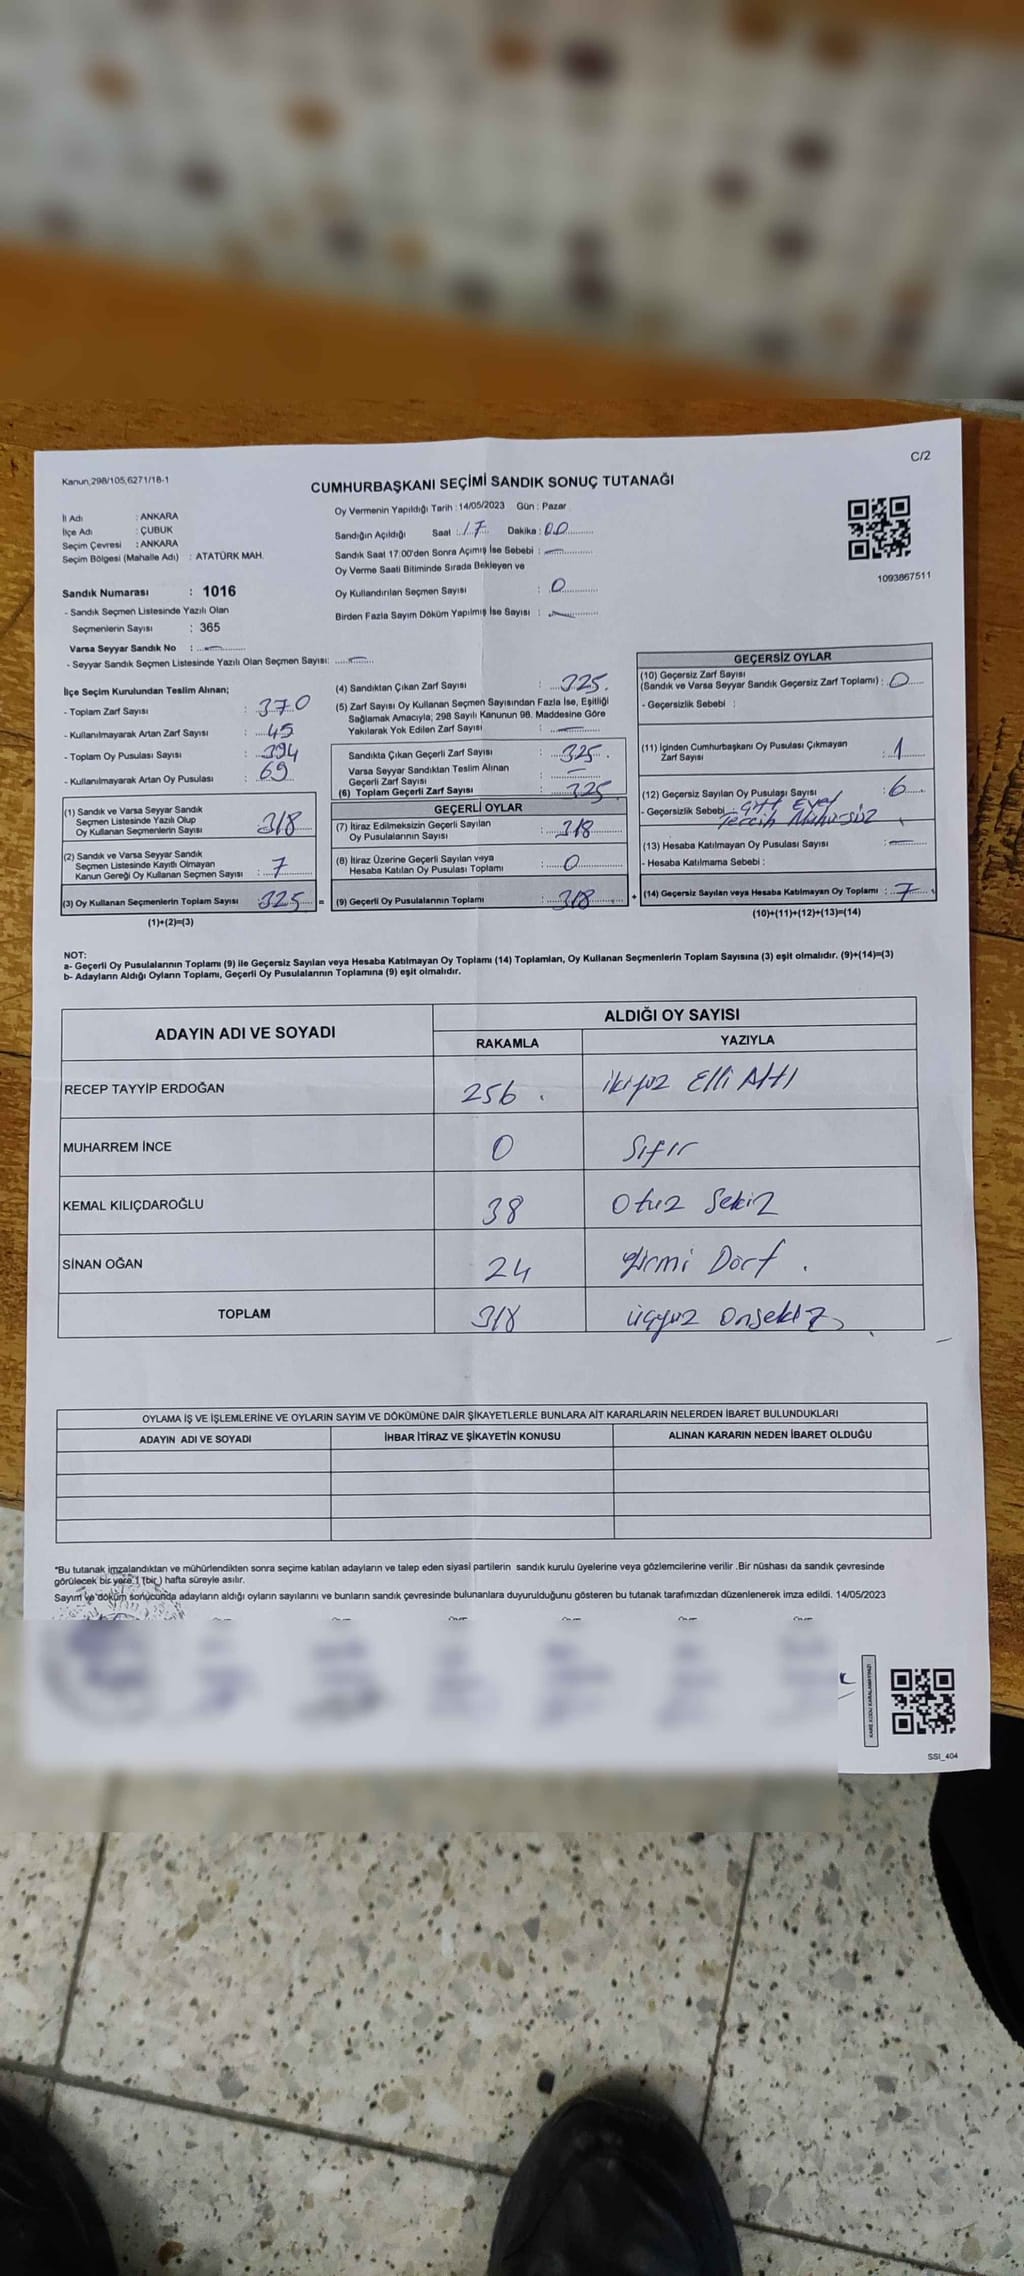 C/2
Kanun,298/105,6271/18-1
CUMHURBAŞKANI SEÇİMİ SANDIK SONUÇ TUTANAĞI
İl Adı : ANKARA
İlçe Adı : ÇUBUK
Seçim Çevresi : ANKARA
Seçim Bölgesi (Mahalle Adı) : ATATÜRK MAH.
Sandık Numarası : 1016
- Sandık Seçmen Listesinde Yazılı Olan
Seçmenlerin Sayısı : 365
Varsa Seyyar Sandık No :
- Seyyar Sandık Seçmen Listesinde Yazılı Olan Seçmen Sayısı:
Oy Vermenin Yapıldığı Tarih :14/05/2023 Gün : Pazar
Sandığın Açıldığı Saat : 17 Dakika : 00
Sandık Saat 17:00'den Sonra Açımış İse Sebebi :
Oy Verme Saati Bitiminde Sırada Bekleyen ve
Oy Kullandırılan Seçmen Sayısı : 0
Birden Fazla Sayım Döküm Yapılmış İse Sayısı :
1093867511
İlçe Seçim Kurulundan Teslim Alınan;
- Toplam Zarf Sayısı : 370
- Kullanılmayarak Artan Zarf Sayısı : 45
- Toplam Oy Pusulası Sayısı : 394
- Kullanılmayarak Artan Oy Pusulası : 69
(1) Sandık ve Varsa Seyyar Sandık
Seçmen Listesinde Yazılı Olup
Oy Kullanan Seçmenlerin Sayısı : 318
(2) Sandık ve Varsa Seyyar Sandık
Seçmen Listesinde Kayıtlı Olmayan
Kanun Gereği Oy Kullanan Seçmen Sayısı : 7
(3) Oy Kullanan Seçmenlerin Toplam Sayısı : 325 =
(1)+(2)=(3)
(4) Sandıktan Çıkan Zarf Sayısı : 325.
(5) Zarf Sayısı Oy Kullanan Seçmen Sayısından Fazla İse, Eşitliği
Sağlamak Amacıyla; 298 Sayılı Kanunun 98. Maddesine Göre
Yakılarak Yok Edilen Zarf Sayısı :
Sandıkta Çıkan Geçerli Zarf Sayısı : 325.
Varsa Seyyar Sandıktan Teslim Alınan
Geçerli Zarf Sayısı :
(6) Toplam Geçerli Zarf Sayısı : 325
GEÇERLİ OYLAR
(7) İtiraz Edilmeksizin Geçerli Sayılan
Oy Pusulalarının Sayısı : 318
(8) İtiraz Üzerine Geçerli Sayılan veya
Hesaba Katılan Oy Pusulası Toplamı : 0
(9) Geçerli Oy Pusulalarının Toplamı : 318 +
GEÇERSİZ OYLAR
(10) Geçersiz Zarf Sayısı
(Sandık ve Varsa Seyyar Sandık Geçersiz Zarf Toplamı) : 0
- Geçersizlik Sebebi :
(11) İçinden Cumhurbaşkanı Oy Pusulası Çıkmayan
Zarf Sayısı : 1
(12) Geçersiz Sayılan Oy Pusulası Sayısı : 6
- Geçersizlik Sebebi : Çift Evet
Tercih Mühürsüz
(13) Hesaba Katılmayan Oy Pusulası Sayısı :
- Hesaba Katılmama Sebebi :
(14) Geçersiz Sayılan veya Hesaba Katılmayan Oy Toplamı : 7
(10)+(11)+(12)+(13)=(14)
NOT:
a- Geçerli Oy Pusulalarının Toplamı (9) ile Geçersiz Sayılan veya Hesaba Katılmayan Oy Toplamı (14) Toplamları, Oy Kullanan Seçmenlerin Toplam Sayısına (3) eşit olmalıdır. (9)+(14)=(3)
b- Adayların Aldığı Oyların Toplamı, Geçerli Oy Pusulalarının Toplamına (9) eşit olmalıdır.
ADAYIN ADI VE SOYADI ALDIĞI OY SAYISI
RAKAMLA YAZIYLA
RECEP TAYYİP ERDOĞAN 256. ikiyüz Elli Altı
MUHARREM İNCE 0 Sıfır
KEMAL KILIÇDAROĞLU 38 Otuz Sekiz
SİNAN OĞAN 24 yirmi Dört .
TOPLAM 318 üçyüz onsekiz
OYLAMA İŞ VE İŞLEMLERİNE VE OYLARIN SAYIM VE DÖKÜMÜNE DAİR ŞİKAYETLERLE BUNLARA AİT KARARLARIN NELERDEN İBARET BULUNDUKLARI
ADAYIN ADI VE SOYADI İHBAR İTİRAZ VE ŞİKAYETİN KONUSU ALINAN KARARIN NEDEN İBARET OLDUĞU
*Bu tutanak imzalandıktan ve mühürlendikten sonra seçime katılan adayların ve talep eden siyasi partilerin sandık kurulu üyelerine veya gözlemcilerine verilir .Bir nüshası da sandık çevresinde
görülecek bir yere 1 (bir ) hafta süreyle asılır.
Sayım ve döküm sonucunda adayların aldığı oyların sayılarını ve bunların sandık çevresinde bulunanlara duyurulduğunu gösteren bu tutanak tarafımızdan düzenlenerek imza edildi. 14/05/2023
KARE KODU KARALAMAYINIZ!
SSI_404